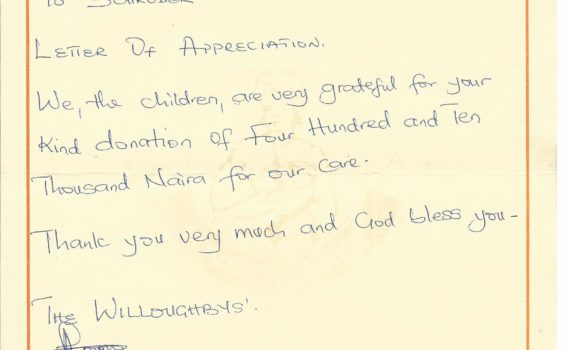 To
LETTER OF APPRECIATION.
We, the children, are very grateful for your
Kind donation of Four Hundred and Ten
Thousand Naira for our care.
Thank you very much and God bless you-
THE WILLOUGHBYS'.